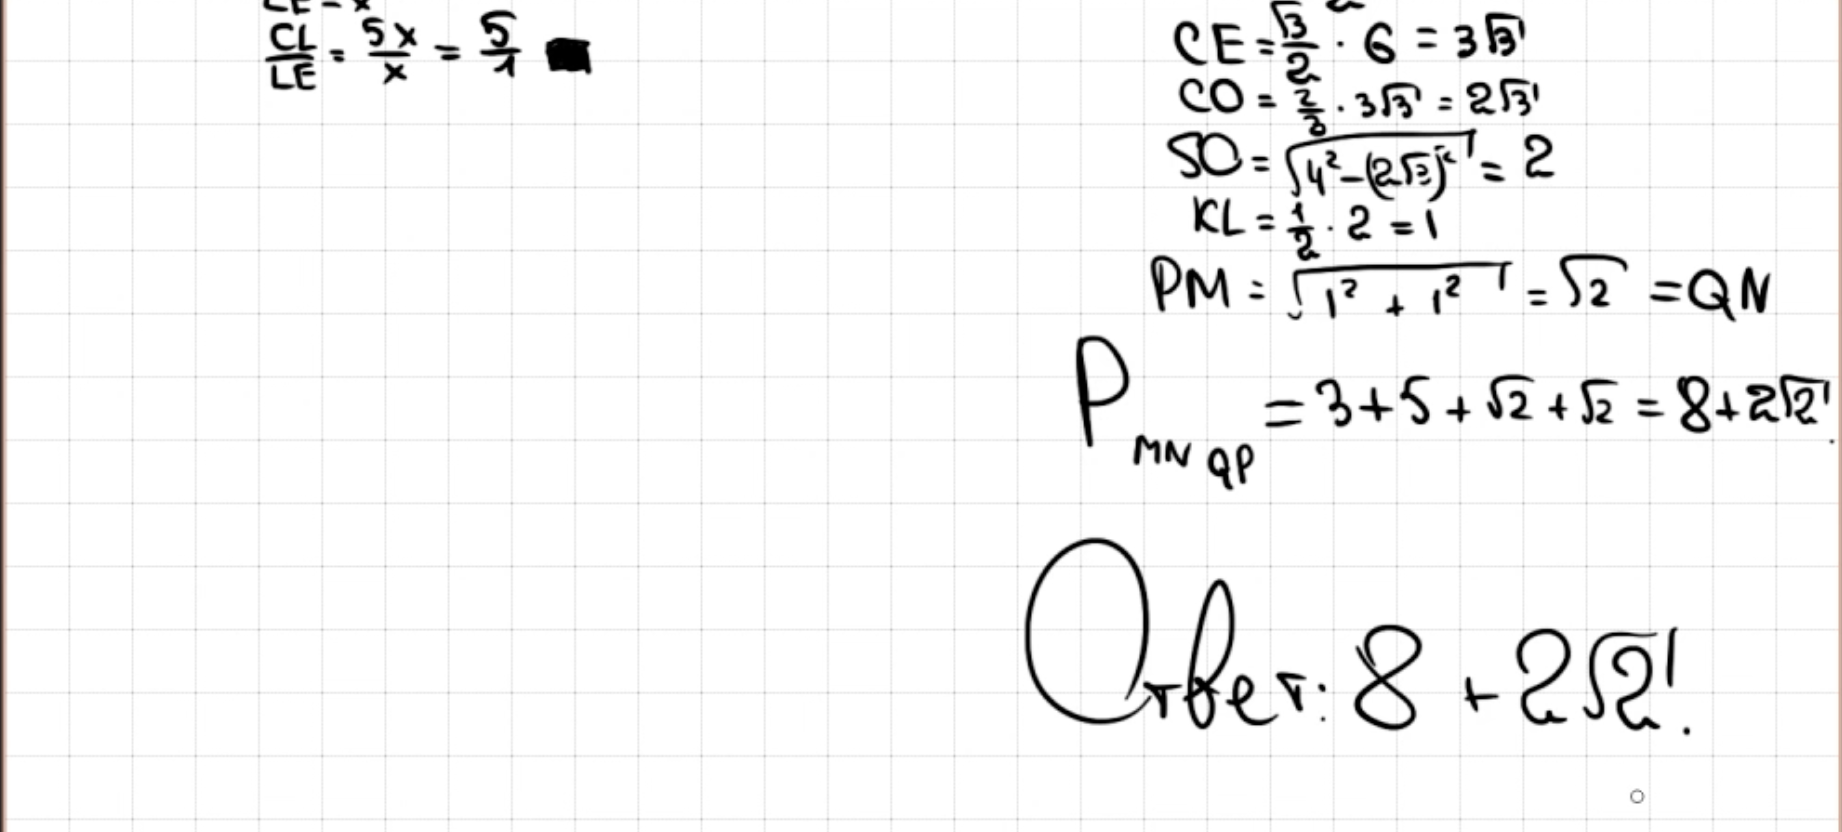 CL/LE = 5x/x = 5/1 ■
CE = √3/2 · 6 = 3√3
CO = 2/3 · 3√3 = 2√3
SO = √(4² − (2√3)²) = 2
KL = 1/2 · 2 = 1
PM = √(1² + 1²) = √2 = QN
P MNQP = 3 + 5 + √2 + √2 = 8 + 2√2.
Ответ: 8 + 2√2.